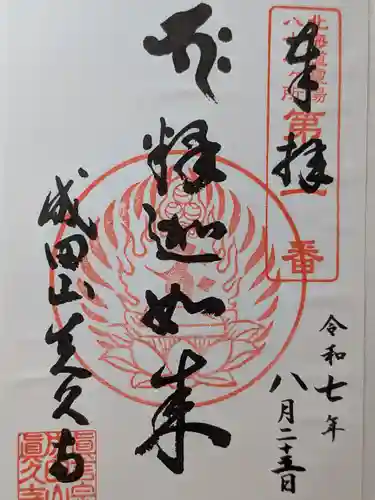 奉拝
北海道霊場
八十八ヶ所
第一番
令和七年
八月二十五日
釋迦如来
成田山真久寺
真久寺